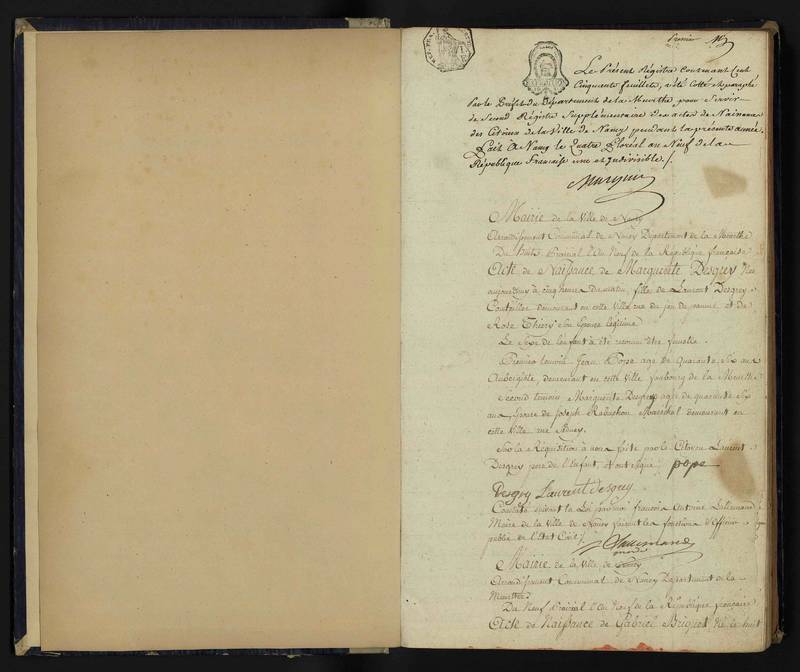 Premier
Le Présent Régistre Contenant Cent
Cinquante feuillets, a été Cotté et paraphé
Par le Préfet du Département de la Meurthe pour Servir
de Second Régistre Supplémentaire des actes de Naissance
des Citoyens de la Ville de Nancy pendant la présente année.
Fait à Nancy le Quatre floréal an Neuf de la
République Française une et Indivisible /.
Marquis
Mairie de la Ville de Nancy
Arrondissement Communal de Nancy Département de la Meurthe
Du huit Prairial l'An Neuf de la République française
Acte de Naissance de Marguerite Desgrey Née
aujourdhuy à cinq heures du matin, fille de Laurent Desgrey
demeurant en cette Ville rue du jeu de paume et de
Rose Thiery Son Epouse légitime
Le Sexe de l'enfant a été reconnu être femelle.
Premier temoin Jean Pope agé de Quarante Six ans
Aubergiste, demeurant en cette Ville faubourg de la Meurthe
Second temoin, Marguerite Desgrey agée de quarante Six
ans, Epouse de Joseph Maréchal demeurant en
cette Ville rue
Sur la Réquisition à nous faite par le Citoyen Laurent
Desgrey pere de l'Enfant, et ont signé pope
Desgrey Laurent Desgrey
Constaté suivant la Loi par moi françois Antoine Lallemand
Maire de la Ville de Nancy faisant les fonctions d'Officier
public de l'Etat Civil /.
Lallemand
Mairie de la Ville de Nancy
Arrondissement Communal de Nancy Département de la
Meurthe.
Du Neuf Prairial l'An Neuf de la République française
Acte de Naissance de Gabriel Briquet Né le huit